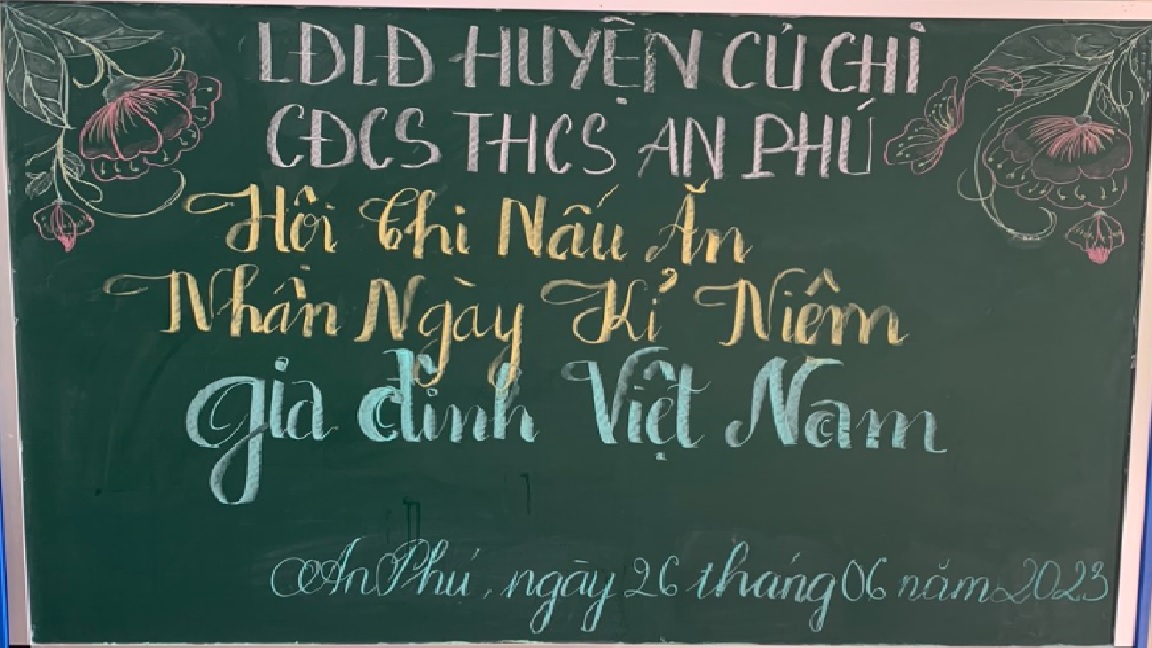 LĐLĐ HUYỆN CỦ CHI
CĐCS THCS AN PHÚ
Hội Thi Nấu Ăn
Nhân Ngày Kỉ Niệm
gia đình Việt Nam
An Phú, ngày 26 tháng 06 năm 2023